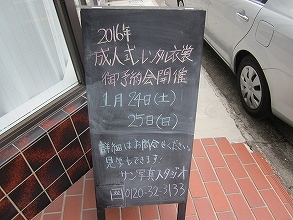 2016年
成人式レンタル衣裳
御予約会開催
1月24日(土)
25日(日)
詳細はお問合せください。
見学もできます。
サン写真スタジオ
0120-32-3133